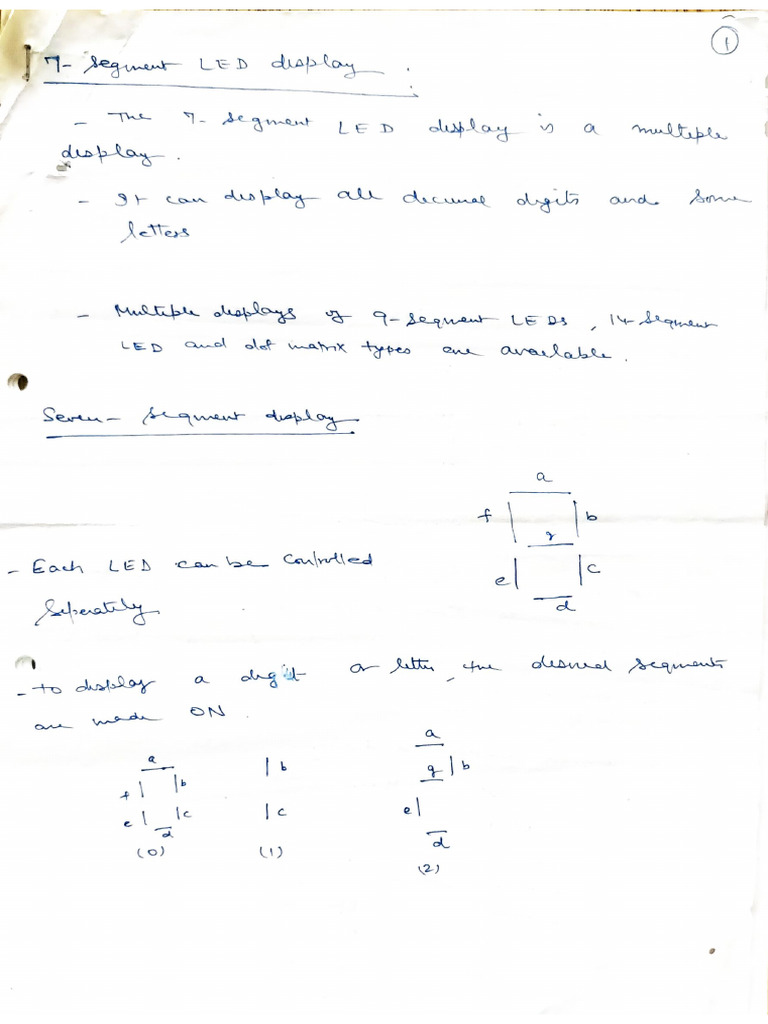 1
7- Segment LED display :
- The 7-segment LED display is a multiple
display.
- It can display all decimal digits and some
letters
- Multiple displays of 9-segment LEDs, 14-segment
LED and dot matrix types are available.
Seven- segment display
a
f b
g
- Each LED can be controlled
e c
Seperately
d
- to display a digit or letter, the desired segments
are made ON.
a
a b
g b
f b
e c c e
d
d
(0) (1)
(2)